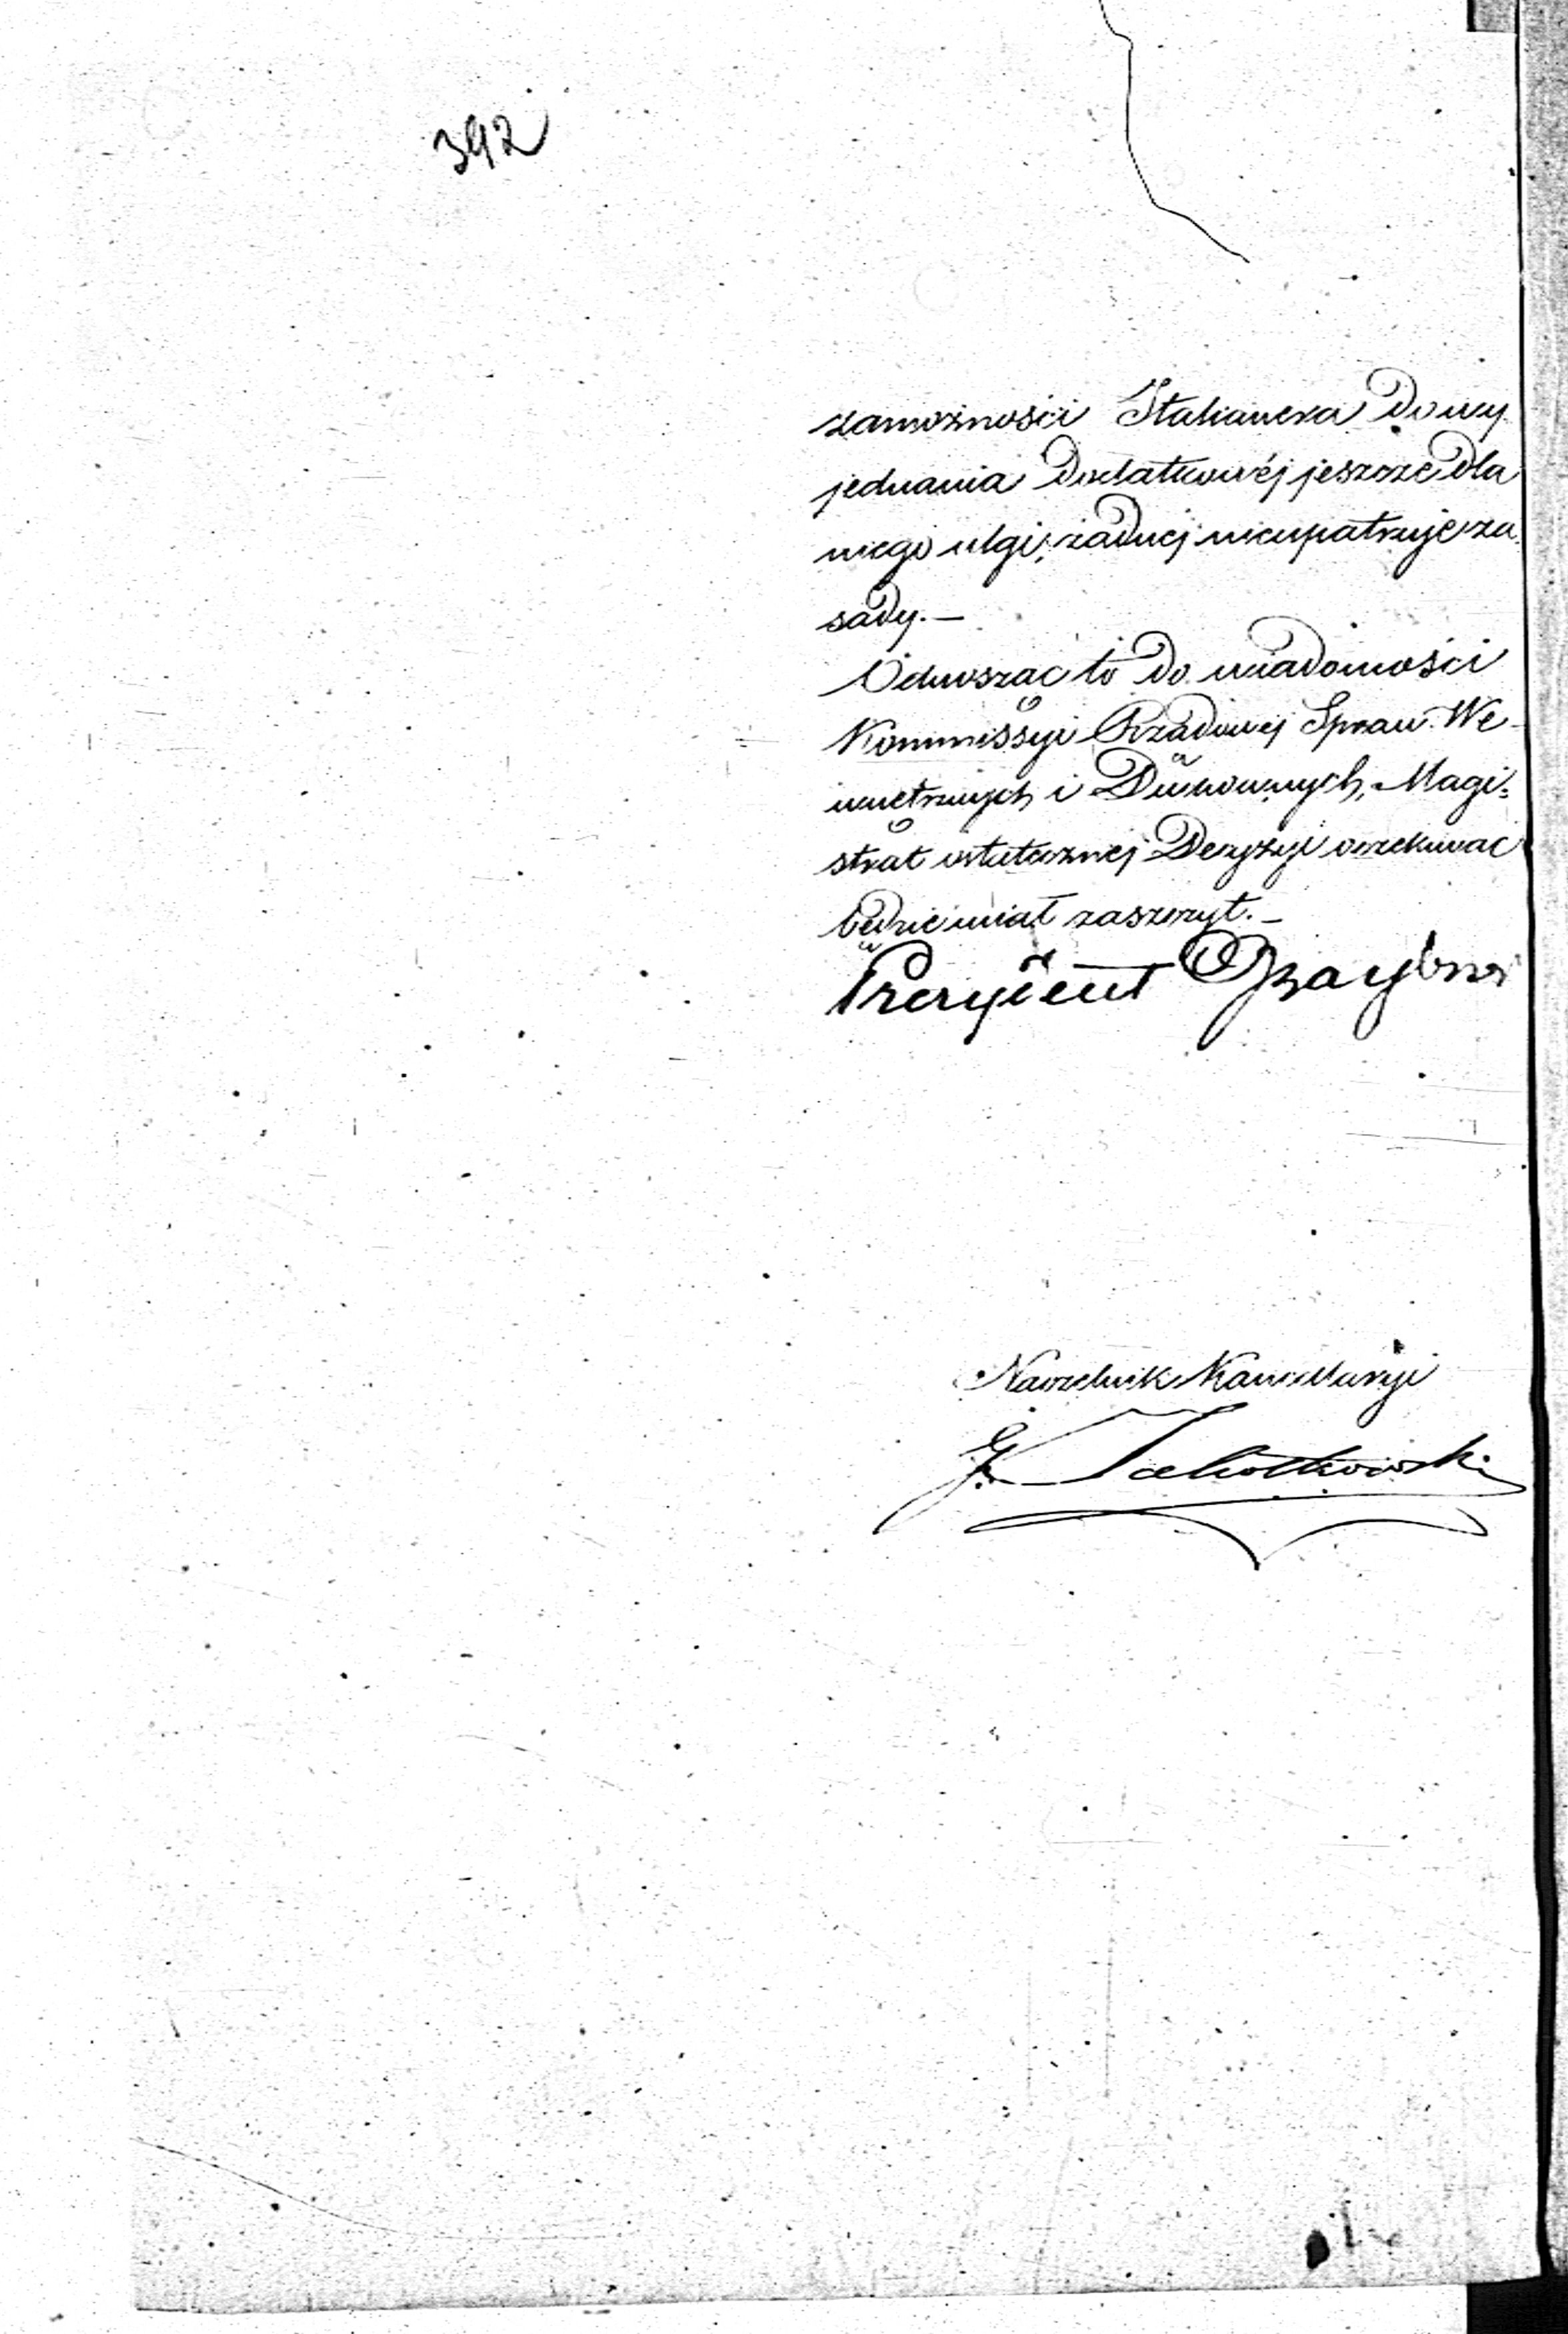 392
zamożności Stakanera do wy
jednania dodatkowéj jeszcze dla
niego ulgi, żadnej nieupatruje za
sady. —
Odnosząc to do wiadomości
Kommissyi Rządowej Spraw We-
wnętrznych i Duchownych, Magi=
strat ostatecznej Decyzyi oczekiwać
będzie miał zaszczyt. —
Prezydent
Naczelnik Kancellaryi